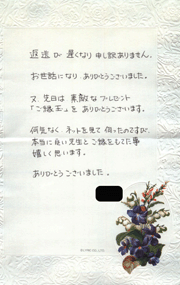 返送が遅くなり申し訳ありません。
お世話になりありがとうございました。
又、先日は素敵なプレゼント
「ご縁玉」をありがとうございます。
何気なくネットを見て伺ったのですが、
本当に良い先生とご縁をもてた事
嬉しく思います。
ありがとうございました。